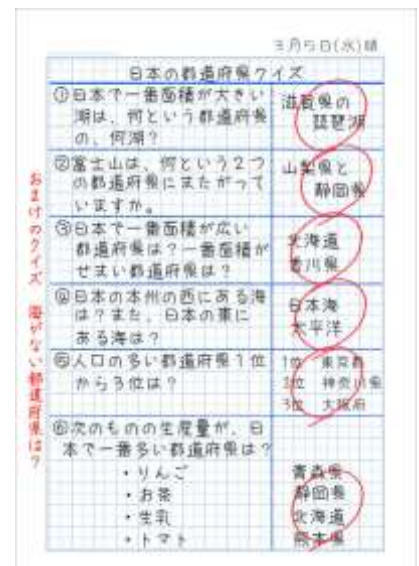 3月5日(水)晴
日本の都道府県クイズ
①日本で一番面積が大きい
湖は、何という都道府県
の、何湖？
滋賀県の
琵琶湖
②富士山は、何という2つ
の都道府県にまたがって
いますか。
山梨県と
静岡県
③日本で一番面積が広い
都道府県は？一番面積が
せまい都道府県は？
北海道
香川県
④日本の本州の西にある海
は？また、日本の東に
ある海は？
日本海
太平洋
⑤人口の多い都道府県1位
から3位は？
1位 東京都
2位 神奈川県
3位 大阪府
⑥次のものの生産量が、日
本で一番多い都道府県は？
・りんご
・お茶
・生乳
・トマト
青森県
静岡県
北海道
熊本県
おまけのクイズ 海がない都道府県は？